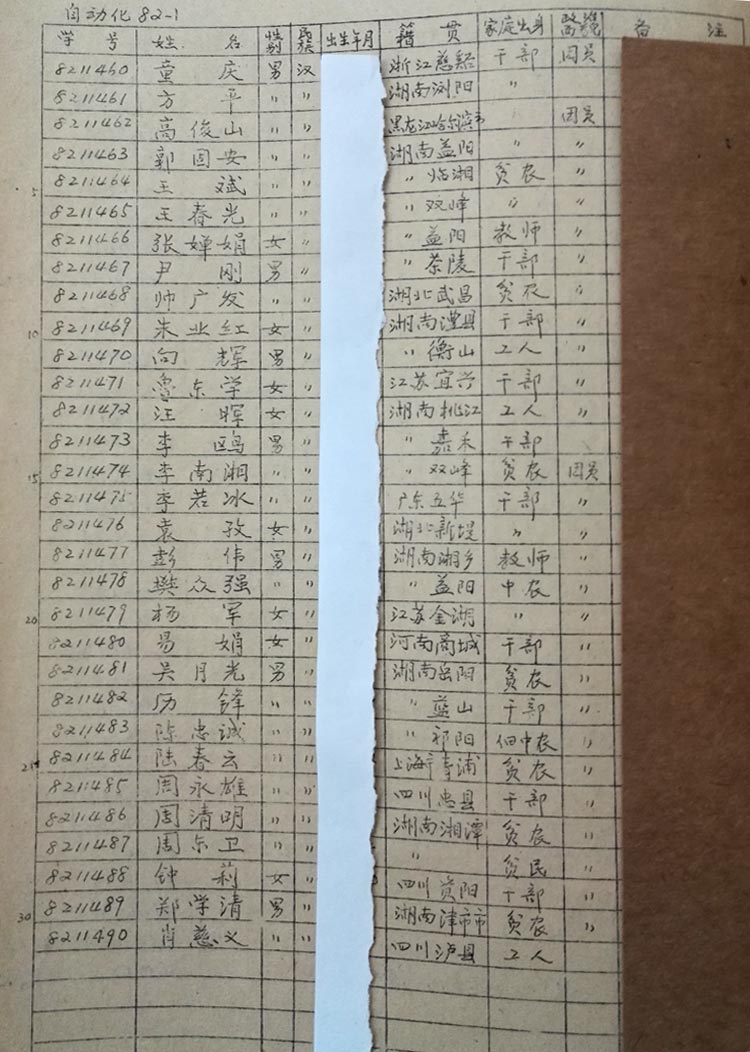 自动化82-1
学号 姓名 性别 民族 出生年月 籍贯 家庭出身 备注
8211460 童庆 男 汉 浙江慈谿 干部 团员
8211461 方平 〃 〃 湖南浏阳 〃
8211462 高俊山 〃 〃 黑龙江哈尔滨市 团员
8211463 郭固安 〃 〃 湖南益阳 〃 〃
5 8211464 王斌 〃 〃 〃 临湘 贫农 〃
8211465 王春光 〃 〃 〃 双峰 〃 〃
8211466 张婵娟 女 〃 〃 益阳 教师 〃
8211467 尹刚 男 〃 〃 茶陵 干部 〃
8211468 帅广发 〃 〃 湖北武昌 贫农 〃
10 8211469 朱业红 女 〃 湖南澧县 干部 〃
8211470 向辉 男 〃 〃 衡山 工人 〃
8211471 鲁东学 女 〃 江苏宜兴 干部 〃
8211472 汪晖 女 〃 湖南桃江 工人 〃
8211473 李鸥 男 〃 〃 嘉禾 干部
15 8211474 李南湘 〃 〃 〃 双峰 贫农 团员
8211475 李若冰 〃 〃 广东五华 干部 〃
8211476 袁孜 女 〃 湖北新堤 〃 〃
8211477 彭伟 男 〃 湖南湘乡 教师 〃
8211478 樊众强 〃 〃 〃 益阳 中农 〃
20 8211479 杨军 女 〃 江苏金湖 〃 〃
8211480 易娟 女 〃 河南商城 干部 〃
8211481 吴月光 男 〃 湖南岳阳 贫农 〃
8211482 厉锋 〃 〃 〃 蓝山 干部 〃
8211483 陈忠诚 〃 〃 〃 祁阳 佃中农 〃
25 8211484 陆春云 〃 〃 上海市青浦 贫农 〃
8211485 周永雄 〃 〃 四川忠县 干部 〃
8211486 周清明 〃 〃 湖南湘潭 贫农 〃
8211487 周东卫 〃 〃 〃 贫民 〃
8211488 钟莉 女 〃 四川资阳 干部 〃
30 8211489 郑学清 男 〃 湖南津市市 贫农 〃
8211490 肖慈义 〃 〃 四川泸县 工人